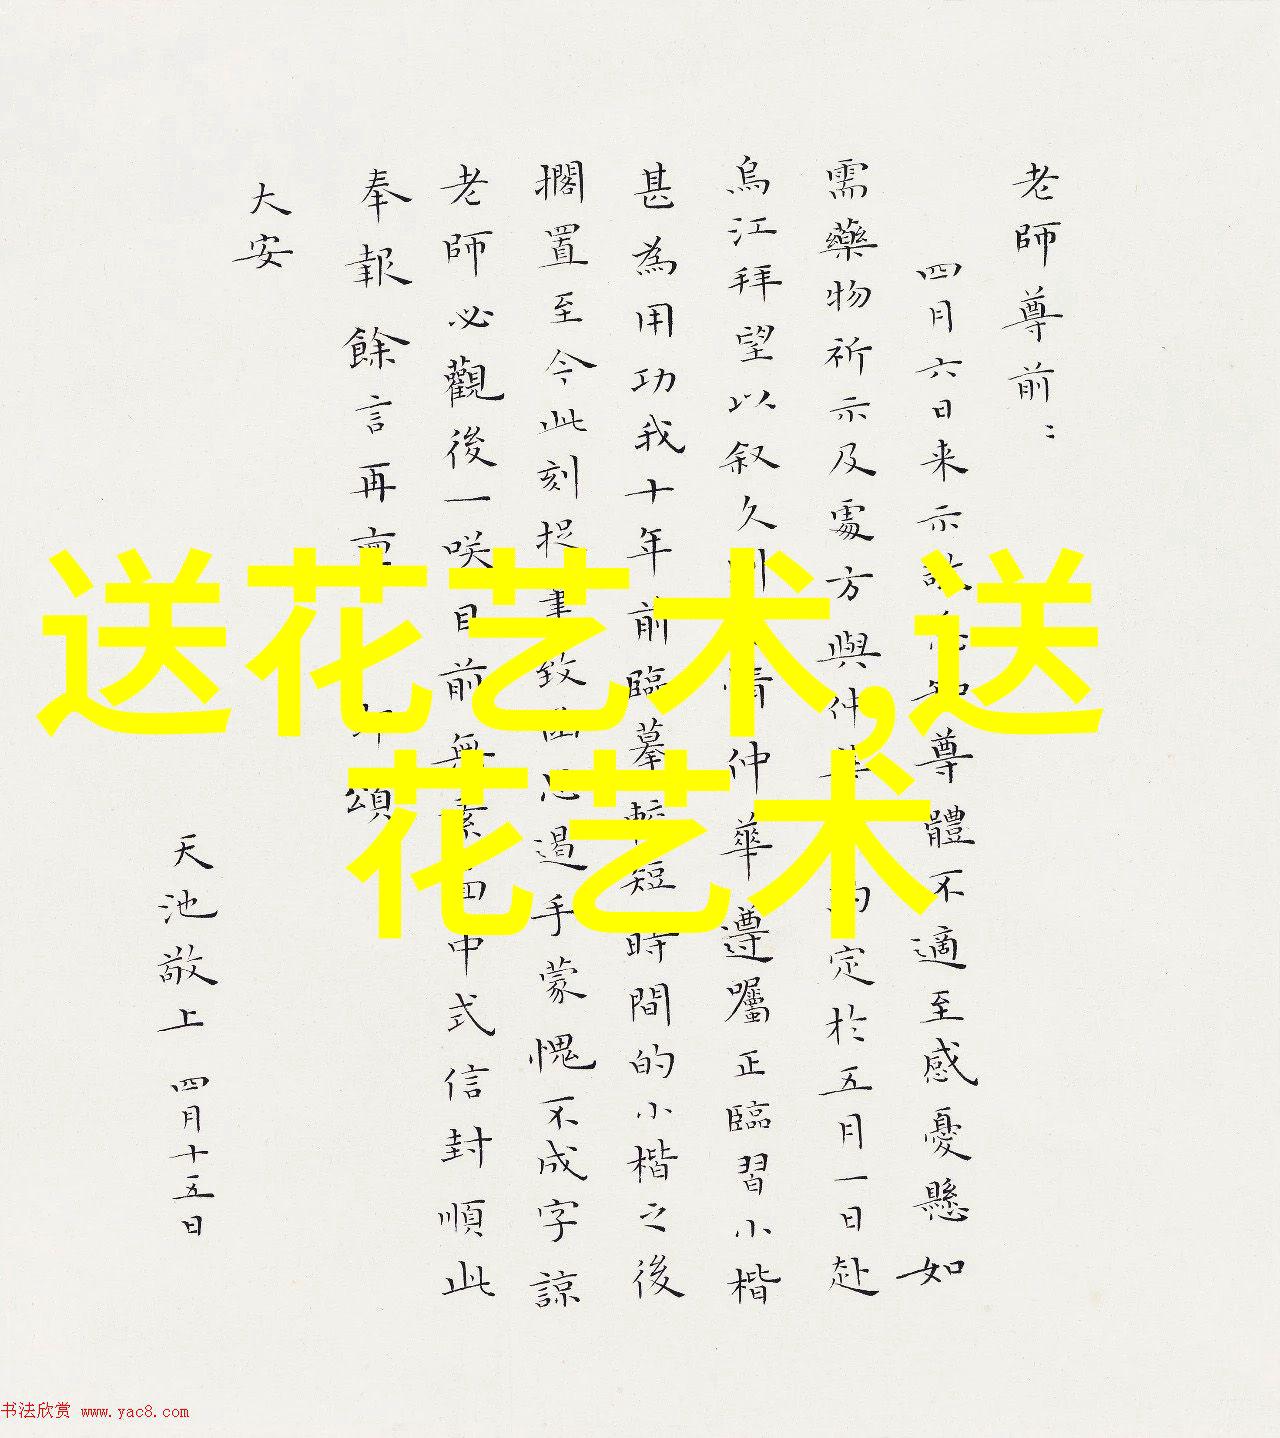 老師尊前：
四月六日来示知尊體不適至感憂懸如
需藥物祈示及處方與仲華約定於五月一日赴
烏江拜望以叙久別情仲華遵囑正臨習小楷
甚為用功我十年前臨摹短時間的小楷之後
擱置至今此刻捉筆致函遏手蒙愧不成字諒
老師必觀後一咲目前無素中式信封順此
奉報餘言再頌
大安
天池敬上 四月十五日
送花艺术,送
花艺术
书法欣赏 www.yac8.com